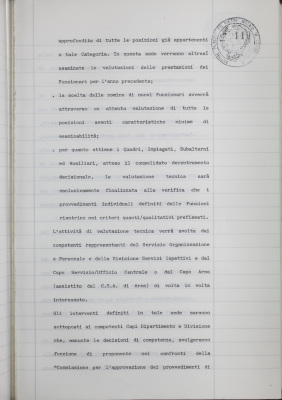 approfondita di tutte le posizioni già appartenenti
a tale Categoria. In questa sede verranno altresì
esaminate le valutazioni delle prestazioni dei
Funzionari per l'anno precedente;
. la scelta delle nomine di nuovi Funzionari avverrà
attraverso un attenta valutazione di tutte le
posizioni aventi caratteristiche minime di
esaminabilità;
. per quanto attiene i Quadri, Impiegati, Subalterni
ed Ausiliari, atteso il consolidato decentramento
decisionale, la valutazione tecnica sarà
esclusivamente finalizzata alla verifica che i
provvedimenti individuali definiti dalle Funzioni
rientrino nei criteri quanti/qualitativi prefissati.
L'attività di valutazione tecnica verrà svolta dai
competenti rappresentanti del Servizio Organizzazione
e Personale e della Divisione Servizi Ispettivi e dal
Capo Servizio/Ufficio Centrale o dal Capo Area
(assistito dal C.S.A. di Area) di volta in volta
interessato.
Gli interventi definiti in tale sede saranno
sottoposti ai competenti Capi Dipartimento e Divisione
che, assunte le decisioni di competenza, svolgeranno
funzione di proponente nei confronti della
"Commissione per l'approvazione dei provvedimenti di